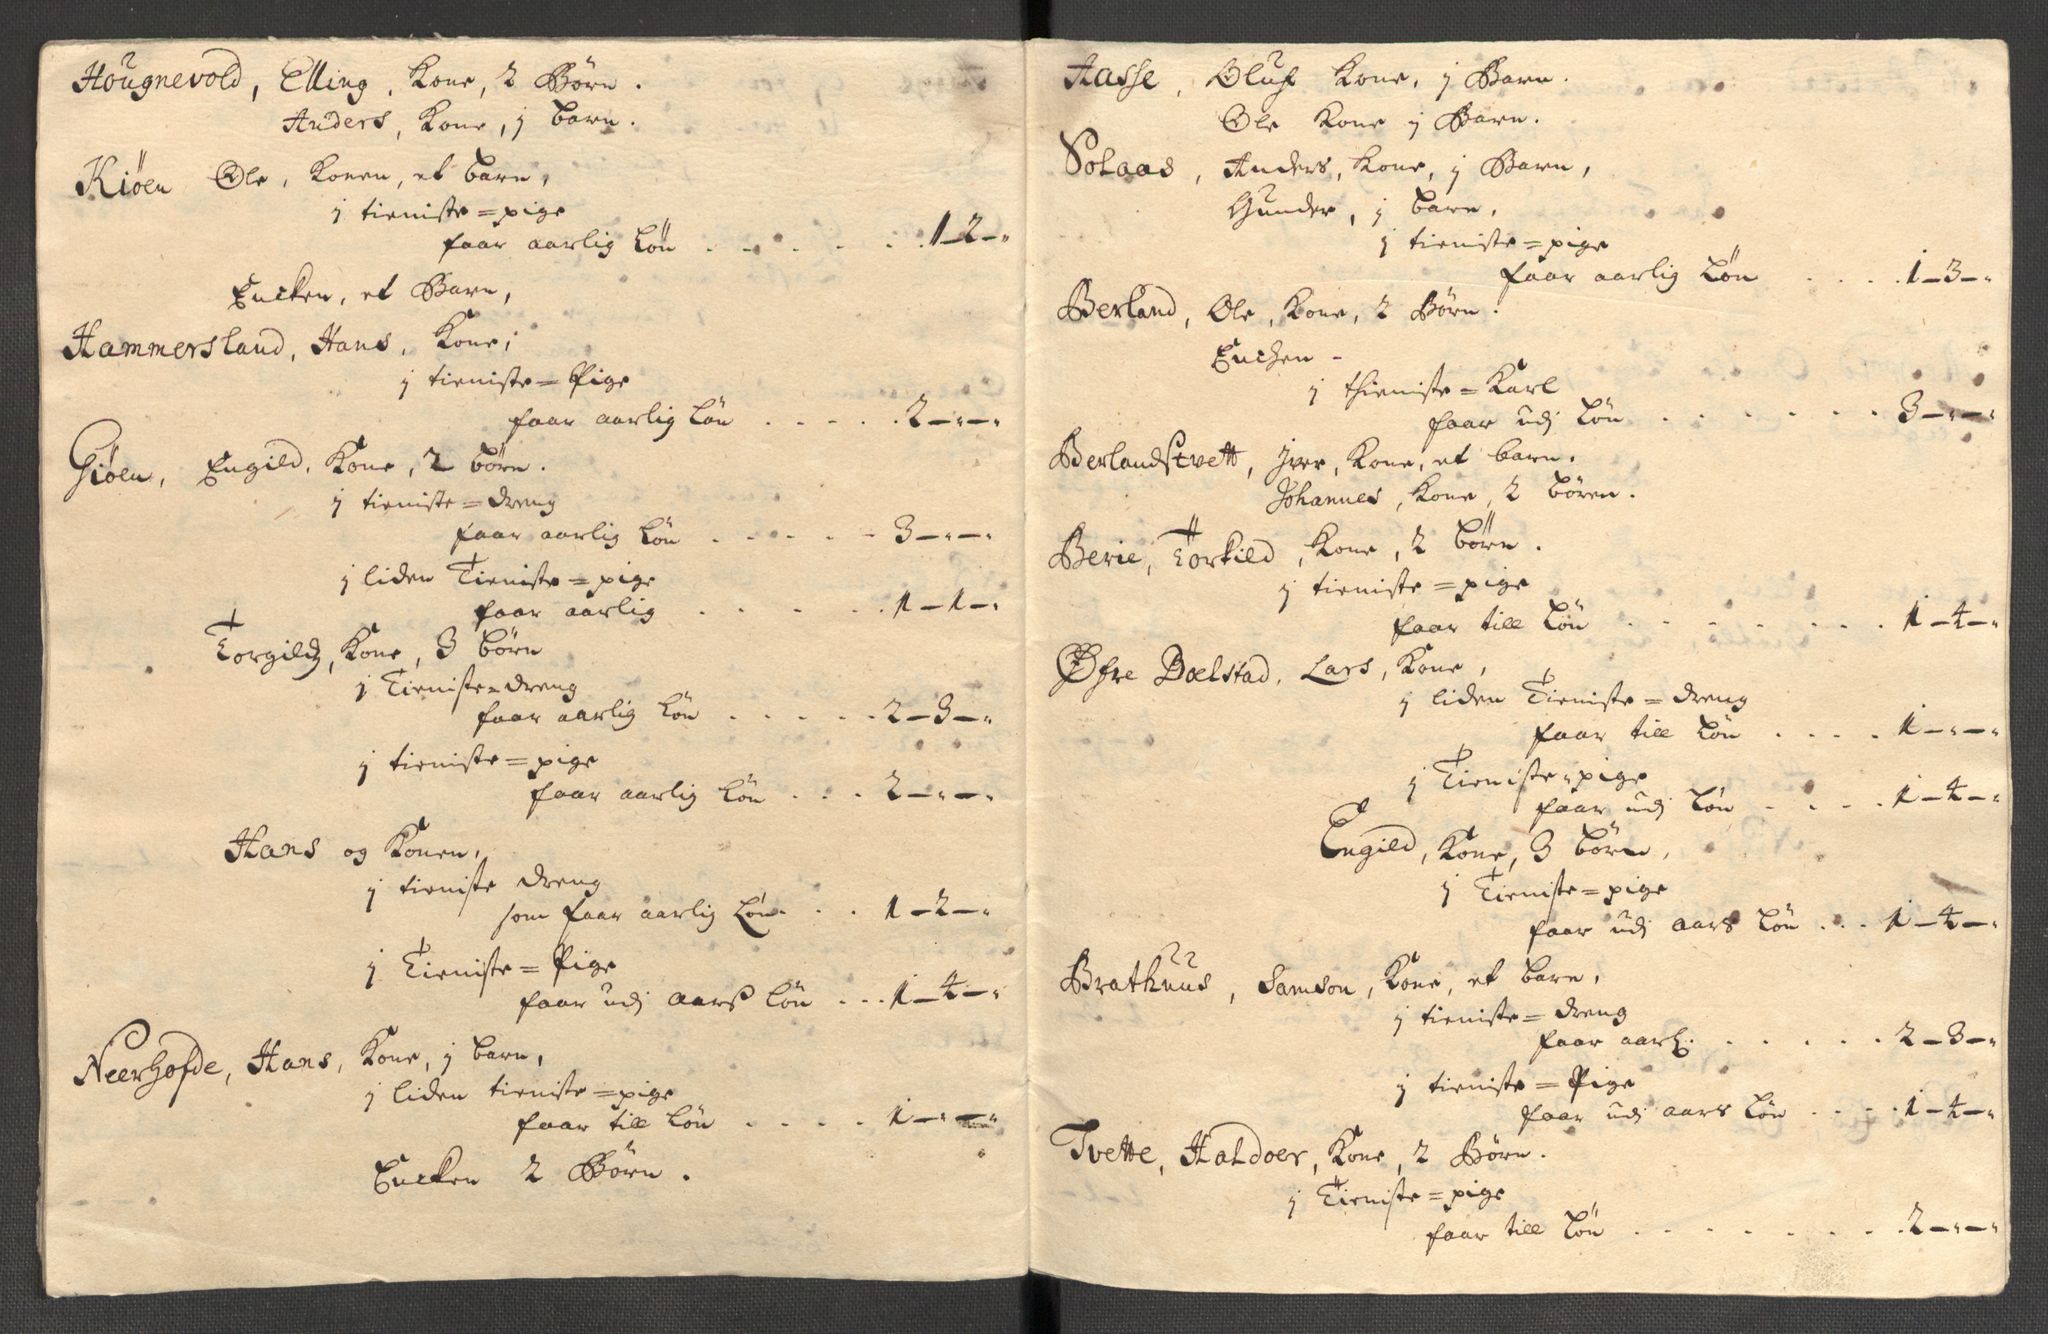 Hougnevold, Elling, Kone, 2 Børn.
Anders, Kone, j barn.
Kiöen Ole, Konen, et barn,
j tieniste=pige
faar aarlig Lön . . . . . . 1-2-"
Encken, et Barn,
Hammersland, Hans, Kone;
j tieniste=Pige
faar aarlig Lön . . . . . 2-"-"
Giöen, Engild, Kone, 2 börn.
j tieniste=dreng
faar aarlig Lön . . . . . 3-"-"
j liden Tieniste=pige
faar aarlig . . . . . 1-1-"
Torgild, Kone, 3 börn
j Tieniste=dreng
faar aarlig Lön . . . . . 2-3-"
j tieniste=pige
faar aarlig Lön . . . 2-"-"
Hans og Konen,
j tieniste dreng
som faar aarlig Lön . . . 1-2-"
j Tieniste=Pige
faar udj aarß Lön . . . 1-4-"
Neerhofde, Hans, Kone, j barn,
j liden tieniste=pige
faar till Lön . . . . 1-"-"
Encken 2 Börn.
Aasse, Oluf Kone, j Barn.
Ole Kone j Barn.
Solaas, Anders, Kone, j Barn,
Gunder, j barn,
j tieniste=pige
faar aarlig Lön . . . . 1-3-"
Berland, Ole, Kone, 2 Börn.
Encken -
j thieniste=Karl
faar udj Lön . . . . . . . 3-"-"
Berlandstvett, Iver, Kone, et barn.
Johannes, Kone, 2 Bören.
Berie, Torkild, Kone, 2 börn.
j tieniste=pige
faar till Lön . . . . . . . . 1-4-"
Øfre Bolstad, Lars, Kone,
j liden Tieniste=dreng
faar till Lön . . . . 1-"-"
j Tieniste=pige
faar udj Lön . . . . 1-4-"
Engild, Kone, 3 börn,
j Tieniste=pige
faar udj aars Lön . . . 1-4-"
Brathuus, Samson, Kone, et barn,
j tieniste=dreng
faar aarl. . . . . . . 2-3-"
j tieniste=Pige
faar udj aars Lön . . . . 1-4-"
Tvette, Haldoer, Kone, 2 Börn.
j Tieniste=pige
faar till Lön . . . . . . . . 2-"-"